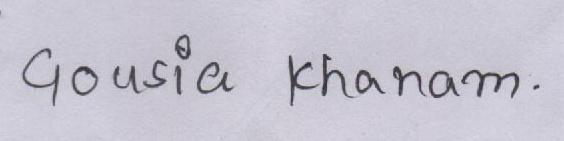 Gousia Khanam.